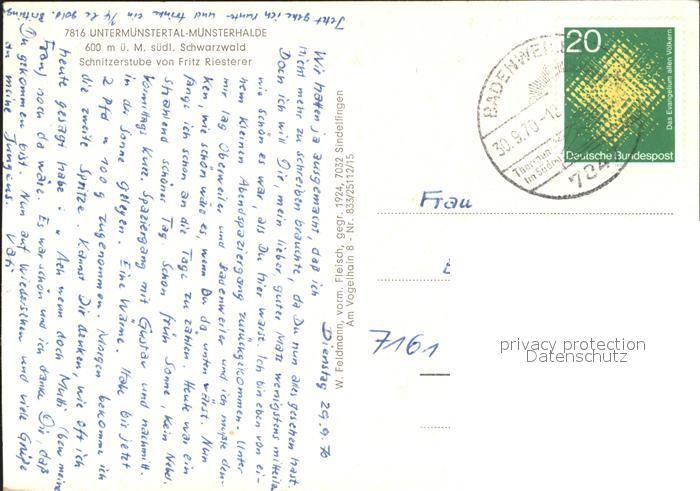 Jetzt gehe ich runter und trinke ein 1/4 le gold.
7816 UNTERMÜNSTERTAL-MÜNSTERHALDE
600 m ü. M. südl. Schwarzwald
Schnitzerstube von Fritz Riesterer
Dienstag 29.9.70
Wir hatten ja ausgemacht, daß ich
nicht mehr zu schreiben brauchte, da Du nun alles gesehen hast.
Doch ich will Dir, mein lieber guter Matz wenigstens mitteilen
wie schön es war, als Du hier warst. Ich bin eben von ei-
nem kleinen Abendspaziergang zurückgekommen. Unter
mir lag Oberweiler und Badenweiler und ich mußte den-
ken, wie schön wäre es, wenn Du da unten wärst. Nun
fange ich schon an die Tage zu zählen. Heute war ein
strahlend schöner Tag. Schon früh Sonne, kein Nebel.
Vormittag kurz. Spaziergang mit Gustav und nachmitt.
in der Sonne gelegen. Eine Wärme. Habe bis jetzt
2 Pfd u 100 g zugenommen. Morgen bekomme ich
die zweite Spritze. Kannst Dir denken, wie oft ich
heute gesagt habe: "Ach wenn doch Mutti (bzw meine
Frau) noch da wäre. Es war schön und ich danke Dir, daß
Du gekommen bist. Nun auf Wiedersehen und viele Grüße
an meine Jungens. Vati
W. Feldmann, vorm. Fleisch, gegr. 1924, 7032 Sindelfingen
Am Vogelhain 8 - Nr. 833/25112/15
BADENWEILER
30.9.70-12
784
20
Das Evangelium allen Völkern
Deutsche Bundespost
Frau
7161
privacy protection
Datenschutz